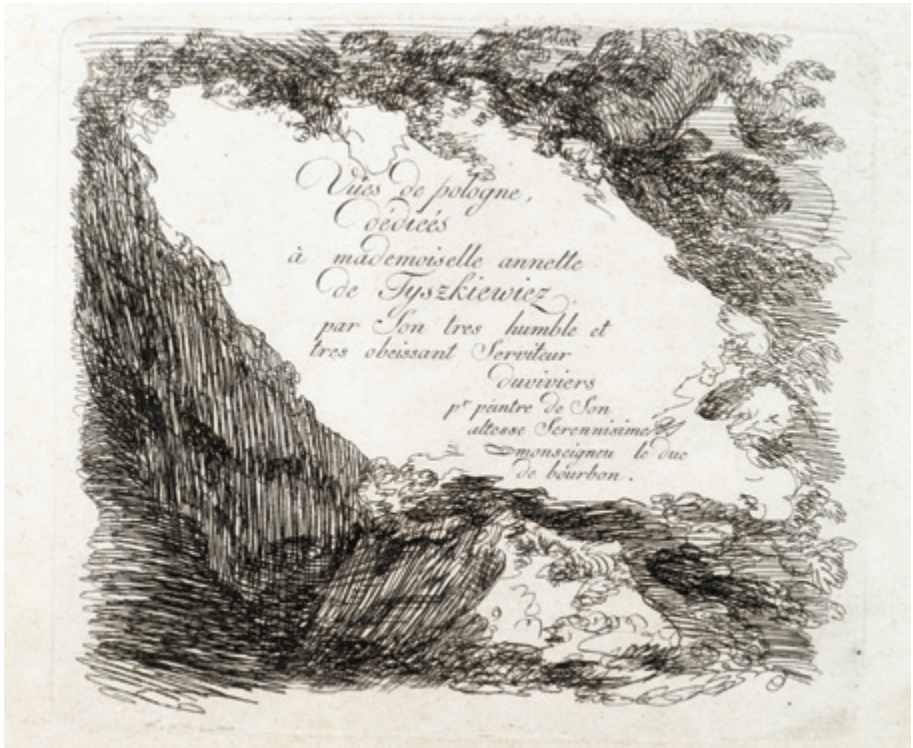 Vües de pologne,
dédieés
à mademoiselle annette
de Tyszkiewiez,
par Son tres humble et
tres obeissant Serviteur
duviviers
pr peintre de Son
altesse Serennisime
monseigneu le duc
de bourbon.